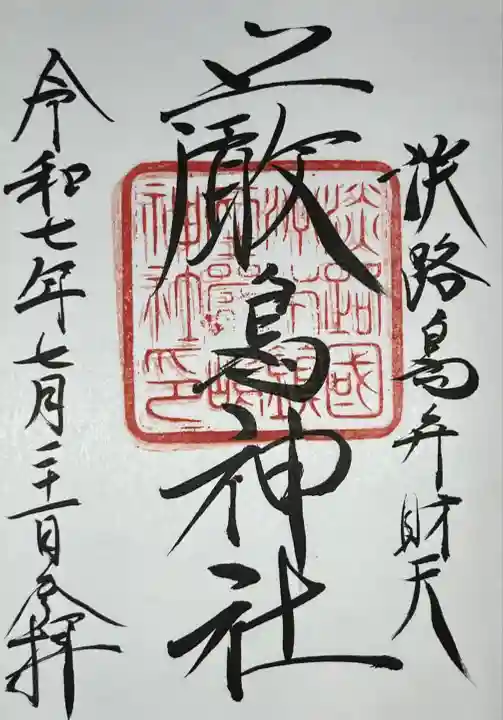 淡路島弁財天
厳島神社
令和七年七月二十一日参拝
淡路國
洲本鎮
神社印